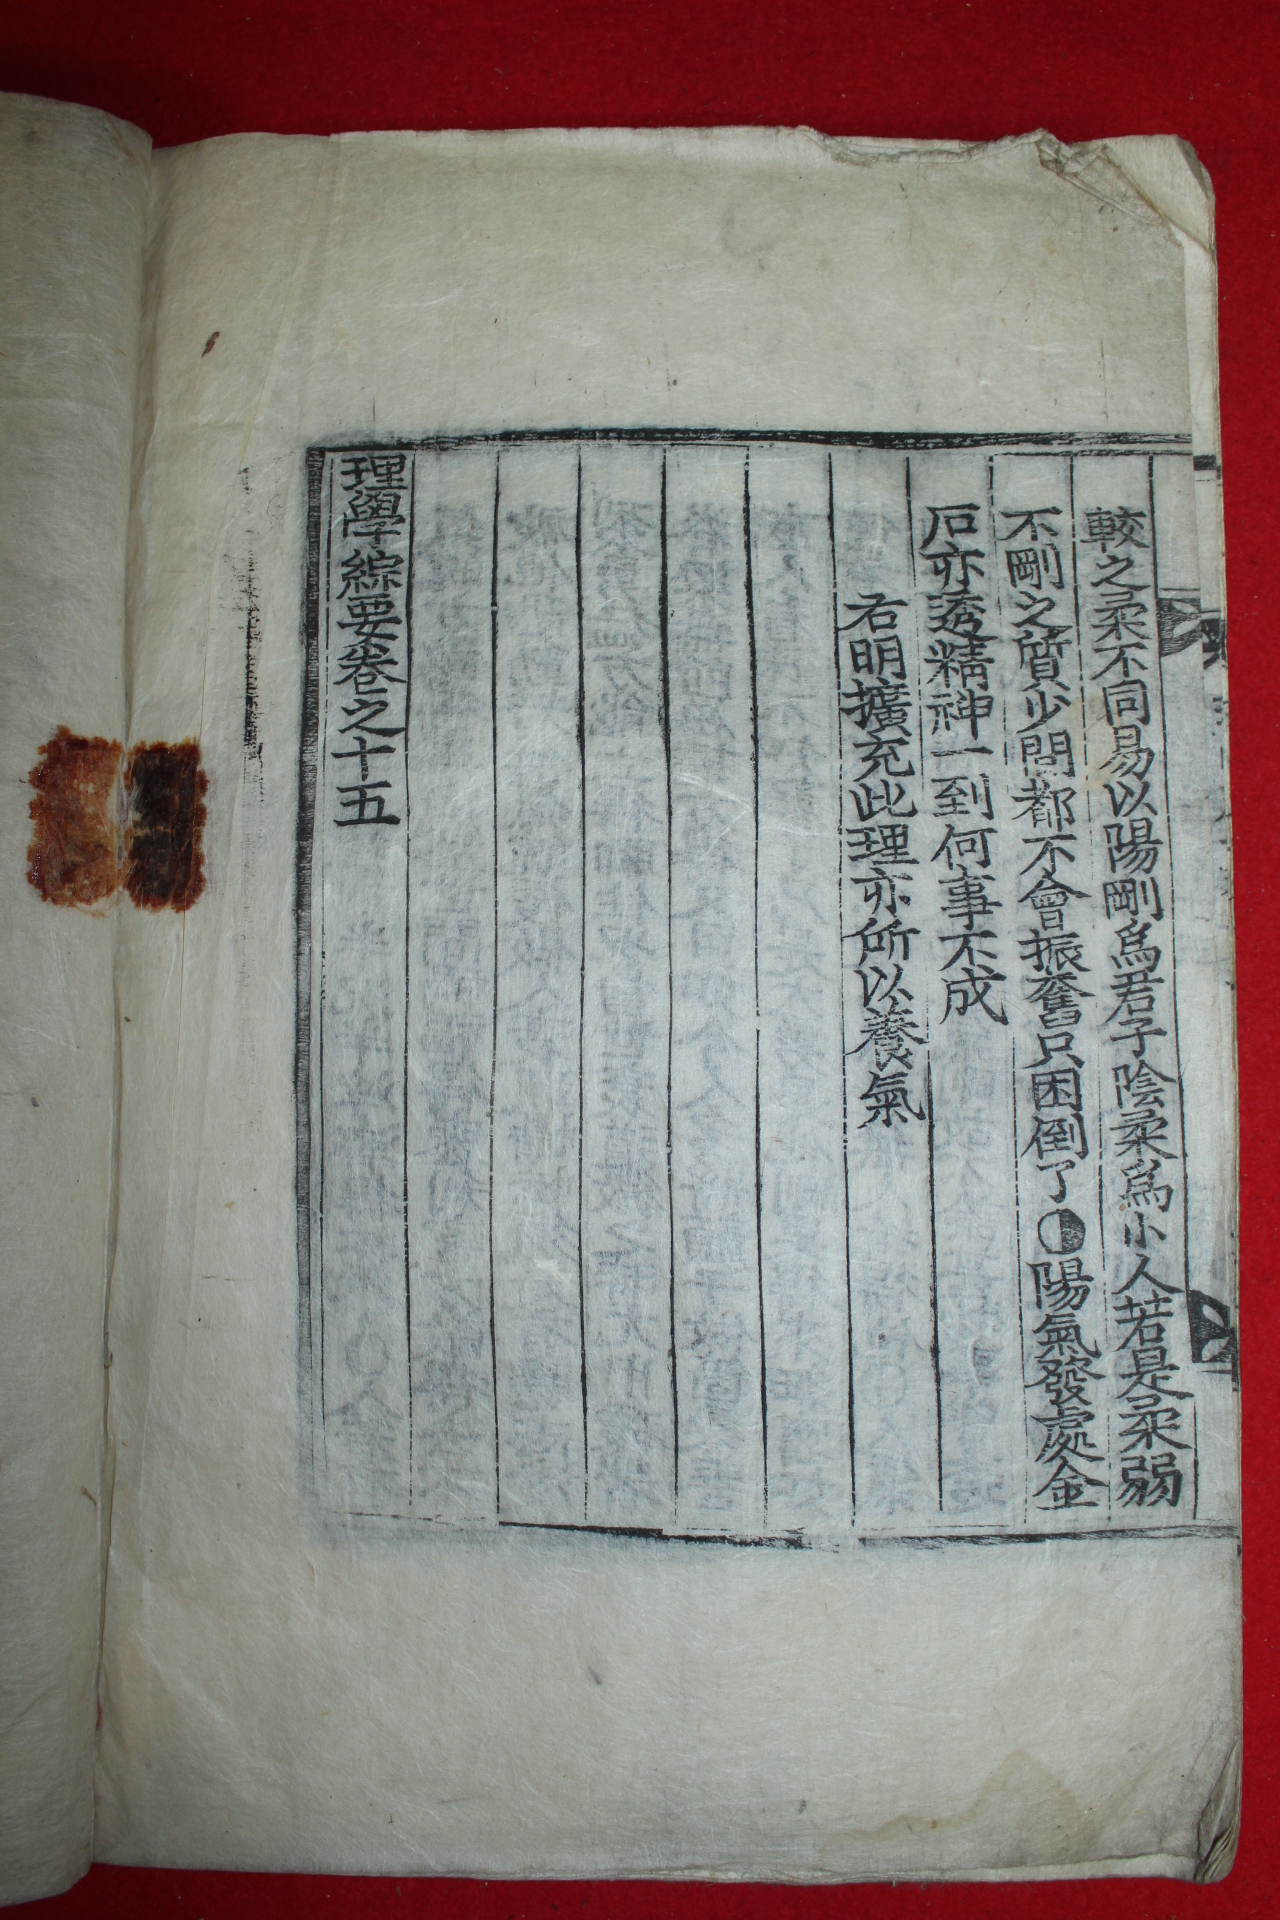 較之柔不同易以陽剛爲君子陰柔爲小人若是柔弱
不剛之質少問都不會振奮只困倒了◑陽氣發處金
石亦透精神一到何事不成
右明擴充此理亦所以養氣
理學綜要卷之十五